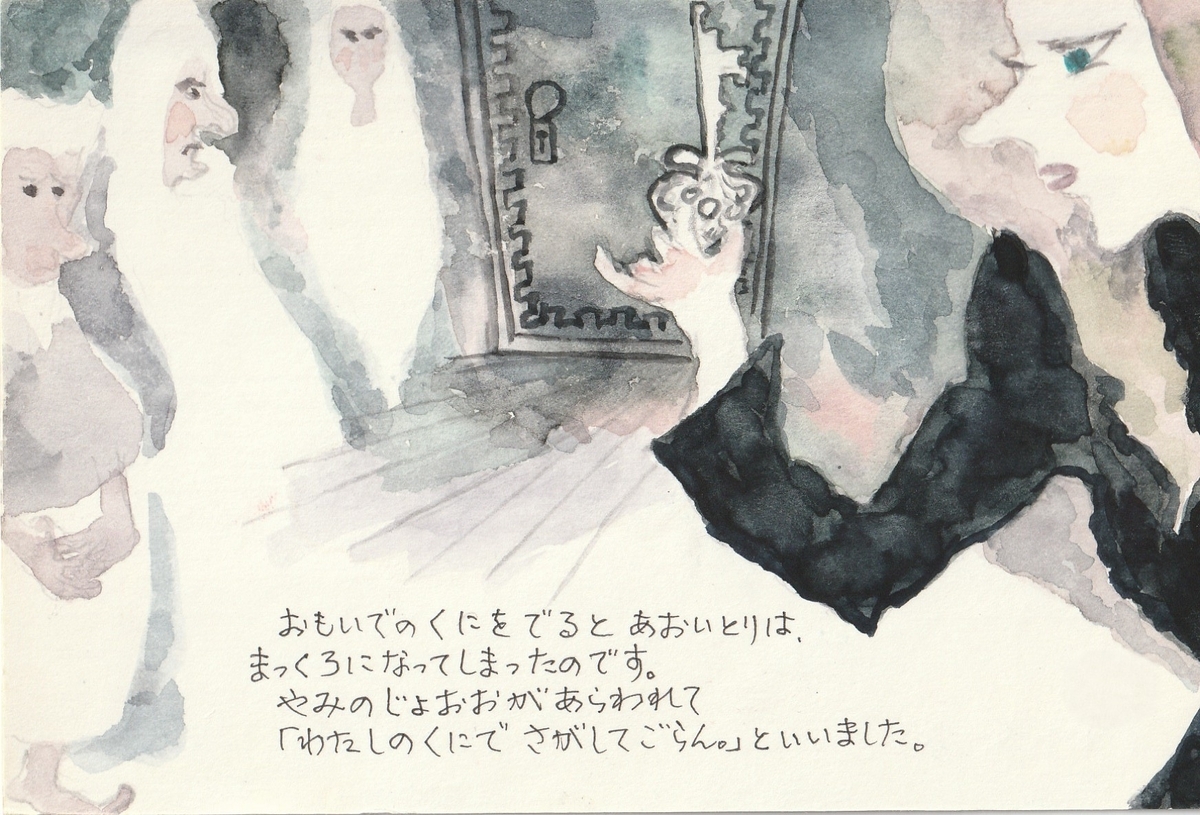 おもいでのくにをでると あおいとりは、
まっくろになってしまったのです。
やみのじょおおがあらわれて
「わたしのくにで さがしてごらん。」といいました。